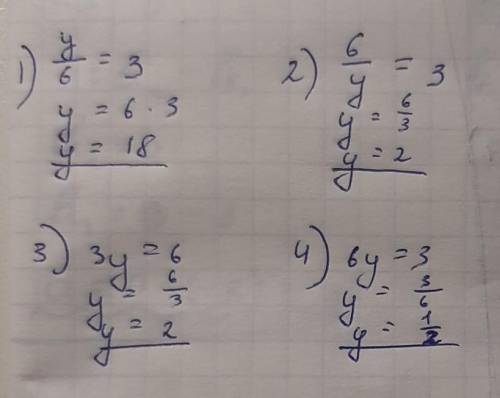 1) y/6 = 3
y = 6 · 3
y = 18
2) 6/y = 3
y = 6/3
y = 2
3) 3y = 6
y = 6/3
y = 2
4) 6y = 3
y = 3/6
y = 1/2